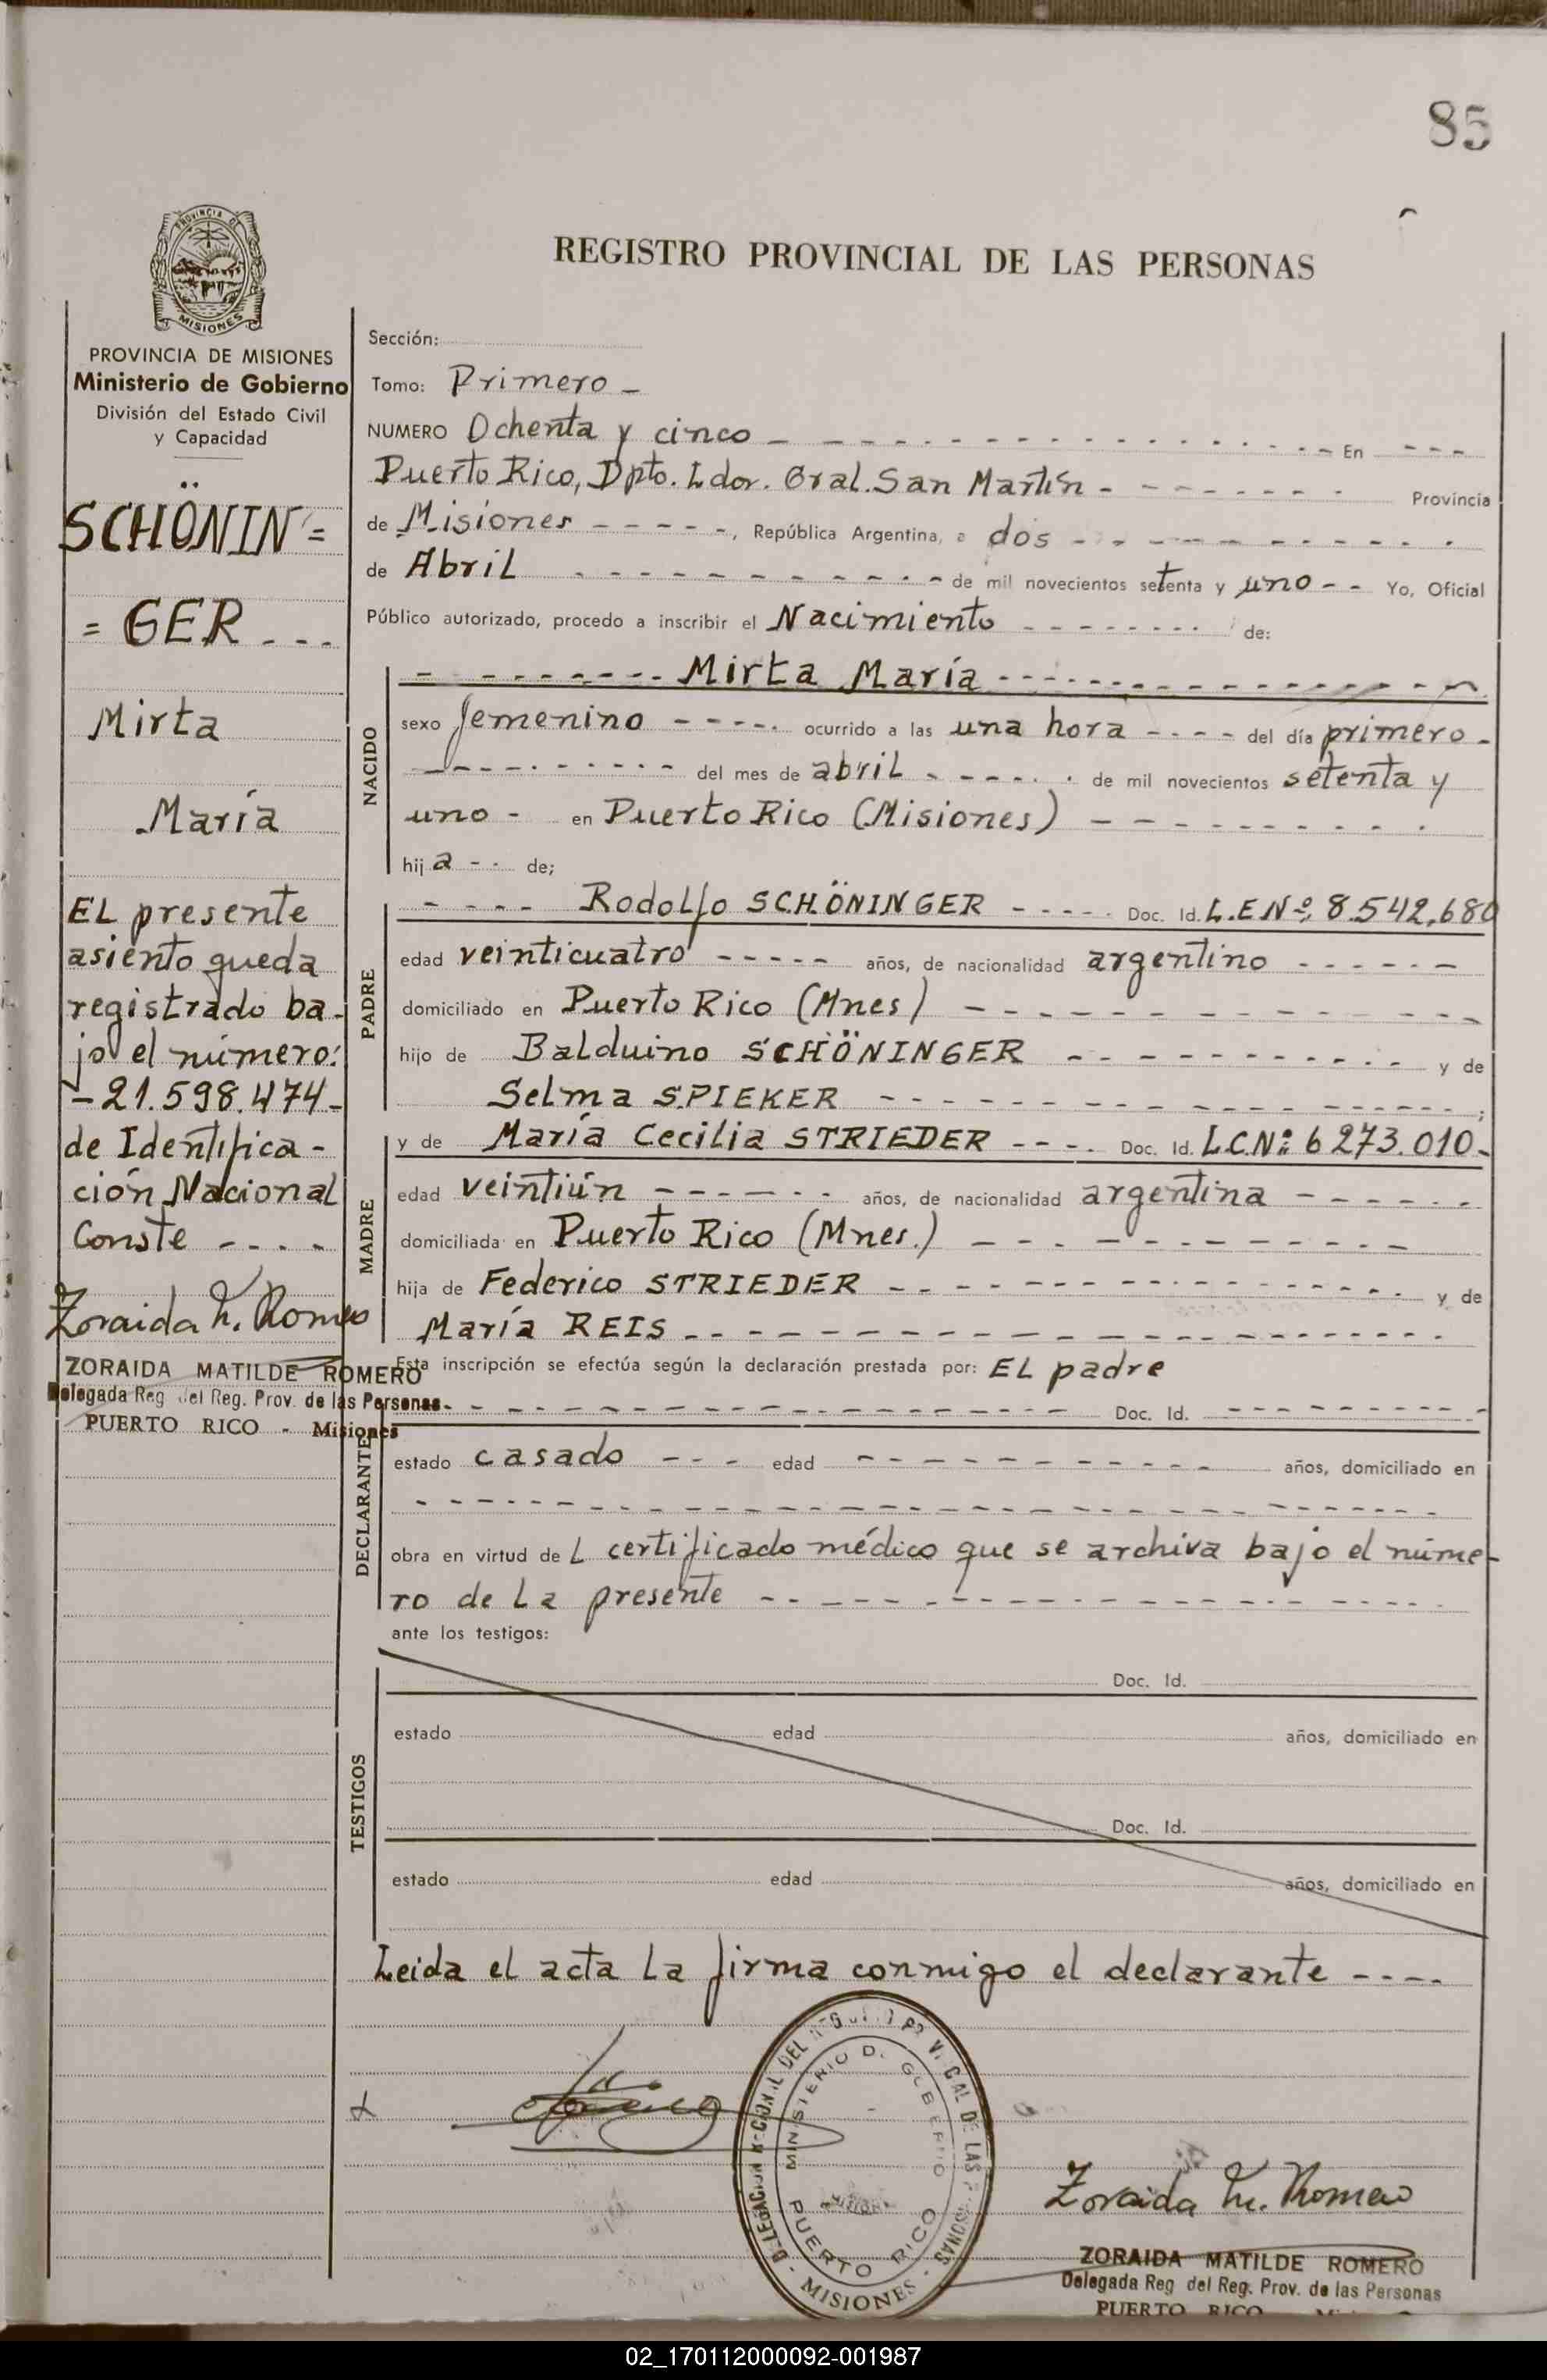 85
REGISTRO PROVINCIAL DE LAS PERSONAS
PROVINCIA DE
MISIONES
PROVINCIA DE MISIONES
Ministerio de Gobierno
División del Estado Civil
y Capacidad
SCHÖNIN=
= GER - - -
Mirta
María
EL presente
asiento queda
registrado ba-
jo el número:
- 21.598.474 -
de Identifica -
ción Nacional
Conste - - - -
Zoraida M. Romero
ZORAIDA MATILDE ROMERO
Delegada Reg del Reg. Prov. de las Personas
PUERTO RICO - Misiones
Sección:
Tomo: Primero -
NUMERO Ochenta y cinco - - - - En - - -
Puerto Rico, Dpto. Ldor. Gral. San Martín - - - - Provincia
de Misiones - - - - -, República Argentina, a dos - - - -
de Abril - - - - de mil novecientos setenta y uno - - Yo, Oficial
Público autorizado, procedo a inscribir el Nacimiento - - - - de:
NACIDO
- - - - Mirta María - - - -
sexo femenino - - - - ocurrido a las una hora - - - - del día primero -
- - - - del mes de abril - - - - de mil novecientos setenta y
uno - en Puerto Rico (Misiones) - - - -
hij a - - de;
PADRE
- - - - Rodolfo SCHÖNINGER - - - - Doc. Id. L.E.Nº: 8.542.680
edad veinticuatro - - - - - años, de nacionalidad argentino - - - -
domiciliado en Puerto Rico (Mnes) - - - -
hijo de Balduino SCHÖNINGER - - - - y de
Selma SPIEKER - - - - ;
MADRE
y de María Cecilia STRIEDER - - - - Doc. Id. L.C.Nº: 6 273.010.-
edad veintiún - - - - años, de nacionalidad argentina - - - -
domiciliada en Puerto Rico (Mnes.) - - - -
hija de Federico STRIEDER - - - - y de
María REIS - - - -
Esta inscripción se efectúa según la declaración prestada por: EL padre
DECLARANTE
- - - - Doc. Id. - - - -
estado casado - - - edad - - - - años, domiciliado en
- - - -
obra en virtud de L certificado médico que se archiva bajo el núme-
ro de La presente - - - -
ante los testigos:
TESTIGOS
Doc. Id.
estado edad años, domiciliado en
Doc. Id.
estado edad años, domiciliado en
Leida el acta La firma conmigo el declarante - - - -
MINISTERIO DE GOBIERNO
PUERTO RICO
- MISIONES -
Zoraida M. Romero
ZORAIDA MATILDE ROMERO
Delegada Reg del Reg. Prov. de las Personas
PUERTO RICO
02_170112000092-001987